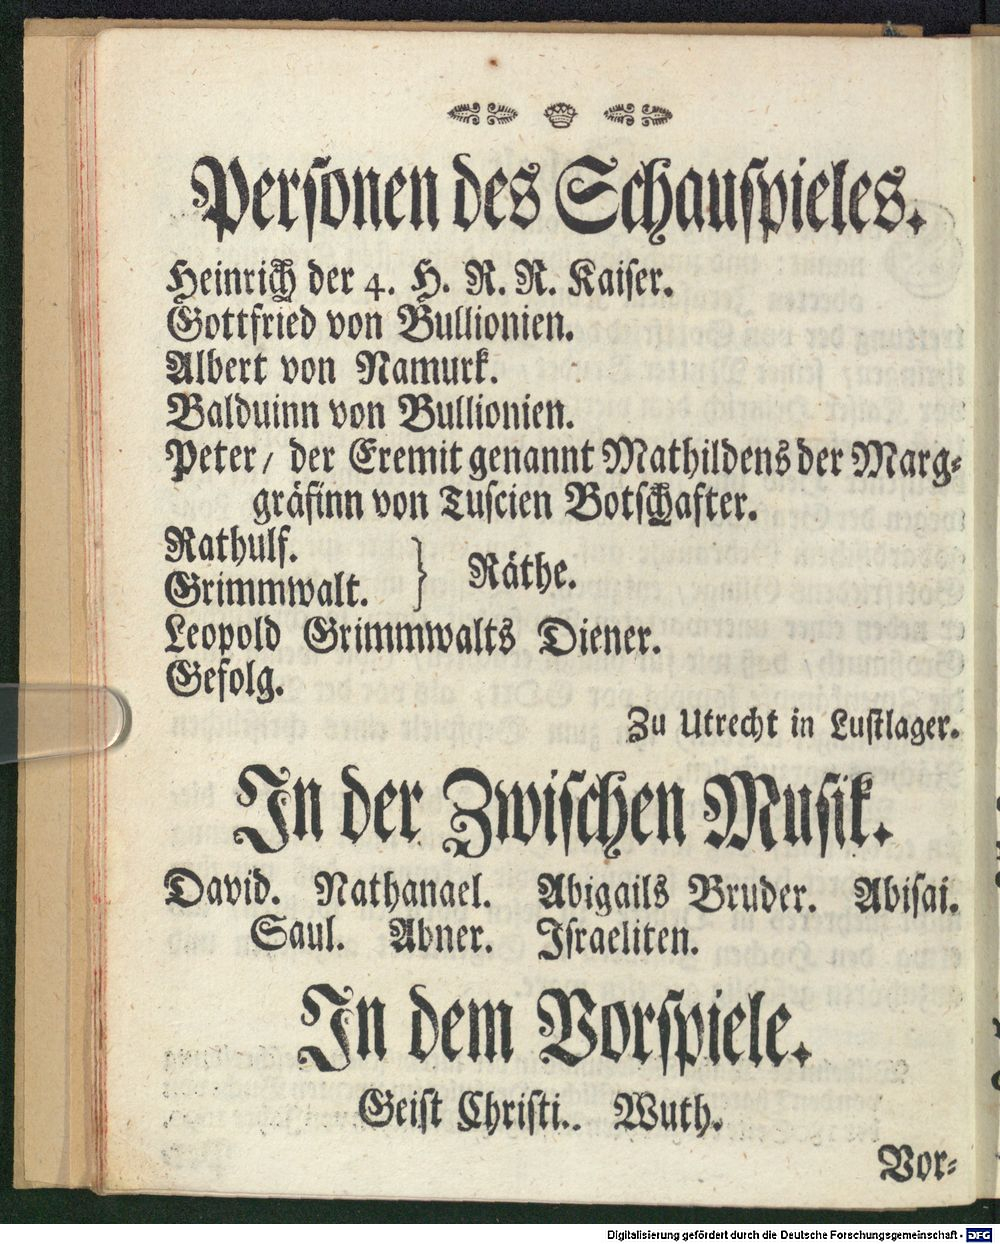 Personen des Schauspieles.
Heinrich der 4. H. R. R. Kaiser.
Gottfried von Bullionien.
Albert von Namurk.
Balduinn von Bullionien.
Peter/ der Eremit genannt Mathildens der Marg-
gräfinn von Tuscien Botschafter.
Rathulf.
Grimmwalt. } Räthe.
Leopold Grimmwalts Diener.
Gefolg.
Zu Utrecht in Lustlager.
In der Zwischen Musik.
David. Nathanael. Abigails Bruder. Abisai.
Saul. Abner. Israeliten.
In dem Vorspiele.
Geist Christi.. Wuth.
Vor-
Digitalisierung gefördert durch die Deutsche Forschungsgemeinschaft - DFG